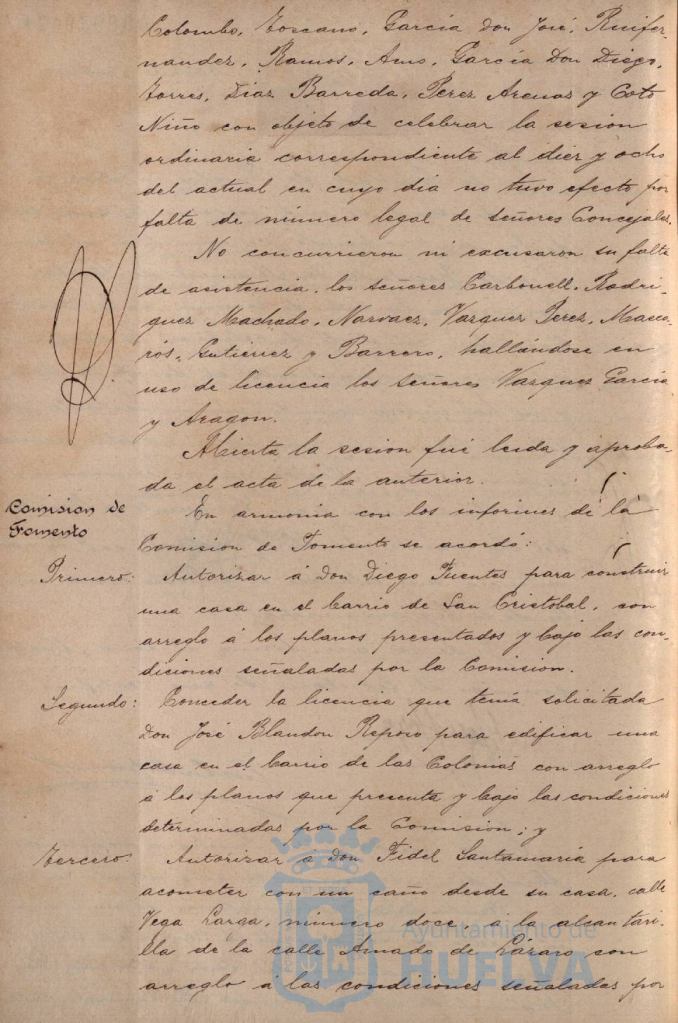 Colombo, Toscano, Garcia Don José, Ruifer-
nandez, Ramos, Amo, Garcia Don Diego,
Torres, Diaz Barreda, Perez Arenas y Coto
Niño con objeto de celebrar la sesion
ordinaria correspondiente al diez y ocho
del actual en cuyo dia no tuvo efecto por
falta de número legal de señores Concejales.
No concurrieron ni excusaron su falta
de asistencia, los señores Carbonell, Rodri-
guez Machado, Narvaez, Vazquez Perez, Masca-
rós, Gutierrez y Barrero, hallándose en
uso de licencia los señores Vazquez Garcia
y Aragon.
Abierta la sesion fué leida y aproba-
da el acta de la anterior.
Comision de
Fomento
En armonia con los informes de la
Comision de Fomento se acordó:
Primero: Autorizar á Don Diego Fuentes para construir
una casa en el barrio de San Cristobal, con
arreglo á los planos presentados y bajo las con-
diciones señaladas por la Comision.
Segundo: Conceder la licencia que tenia solicitada
Don José Blandon Reposo para edificar una
casa en el barrio de las Colonias con arreglo
á los planos que presenta y bajo las condiciones
determinadas por la Comision; y
Tercero: Autorizar á Don Fidel Santamaria para
acometer con un caño desde su casa, calle
Vega Larga, número doce, á la alcantari-
lla de la calle Amado de Lázaro con
arreglo á las condiciones señaladas por
Ayuntamiento de
HUELVA